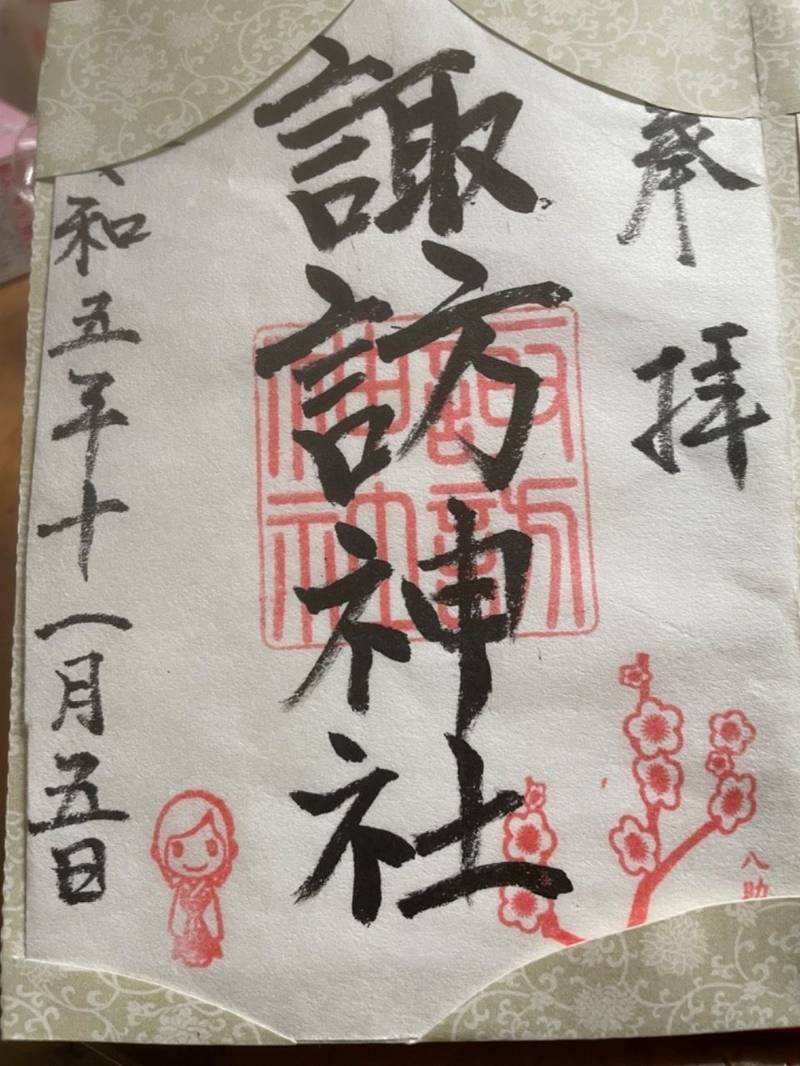 奉拝
諏訪神社
諏訪神社
令和五年十一月五日
八助